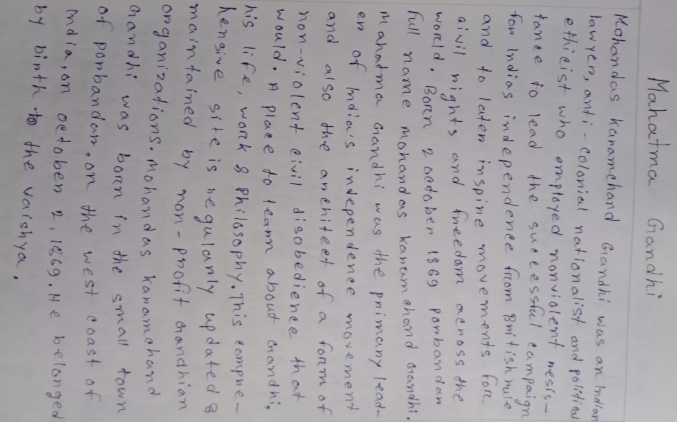 Mahatma Gandhi
Mohandas Karamchand Gandhi was an Indian
lawyer, anti-colonial nationalist and political
ethicist who employed nonviolent resis-
tance to lead the successful campaign
for Indias independence from British rule
and to later inspire movements for
civil rights and freedom across the
world. Born 2 october 1869 porbandar
full name mohandas karamchand Gandhi.
Mahatma Gandhi was the primary lead-
er of India's independence movement
and also the architect of a form of
non-violent civil disobedience that
would. A place to learn about Gandhi,
his life, work & philosophy. This compre-
hensive site is regularly updated &
maintained by non-profit Gandhian
organizations. Mohandas karamchand
Gandhi was born in the small town
of porbandar, on the west coast of
India, on october 2, 1869. He belonged
by birth to the vaishya.